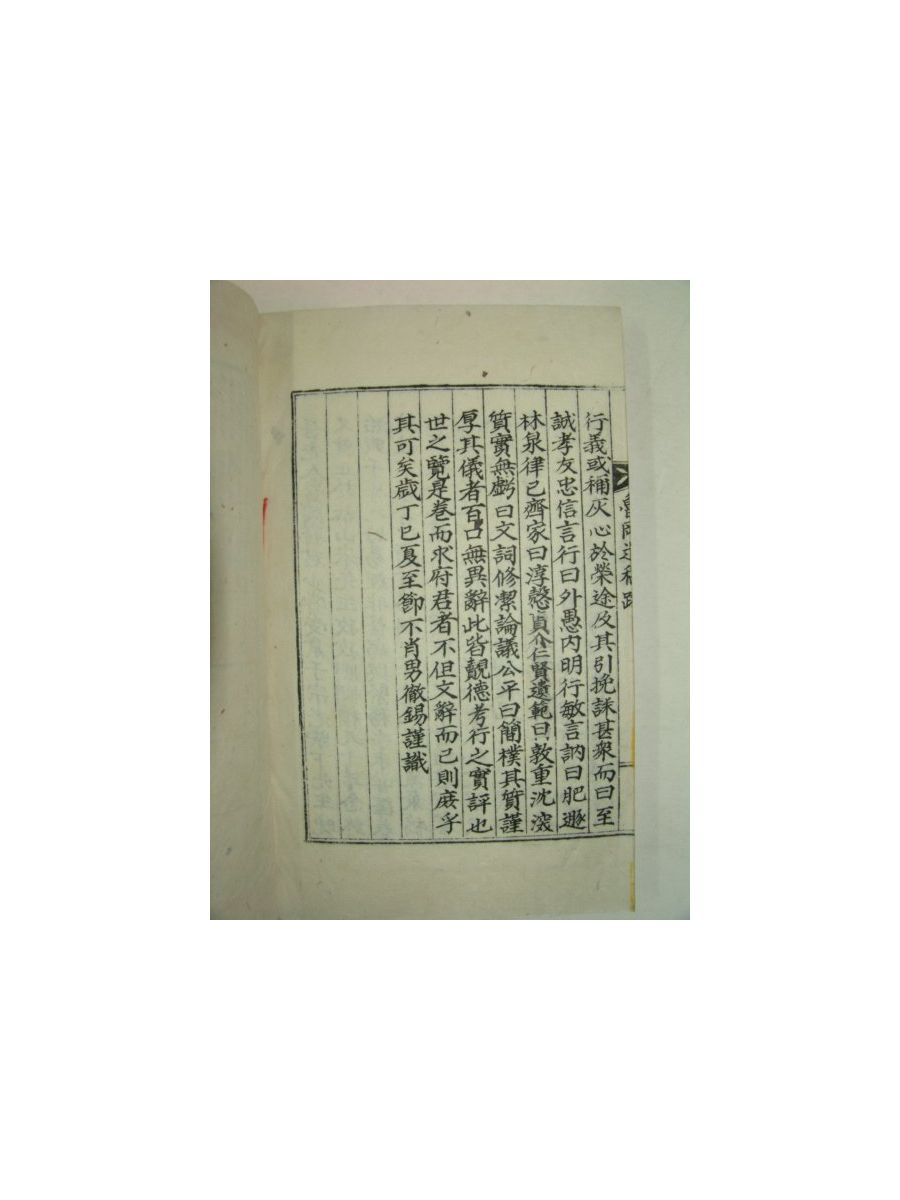 魯岡遺稿跋
行義或補灰心於榮途及其引挽誄甚衆而曰至
誠孝友忠信言行曰外愚內明行敏言訥曰肥遯
林泉律己齊家曰淳慤貞介仁賢遺範曰敦重沈深
質實無虧曰文詞修潔論議公平曰簡樸其質謹
厚其儀者百口無異辭此皆覿德考行之實評也
世之覽是卷而求府君者不但文辭而已則庶乎
其可矣歲丁巳夏至節不肖男徹錫謹識